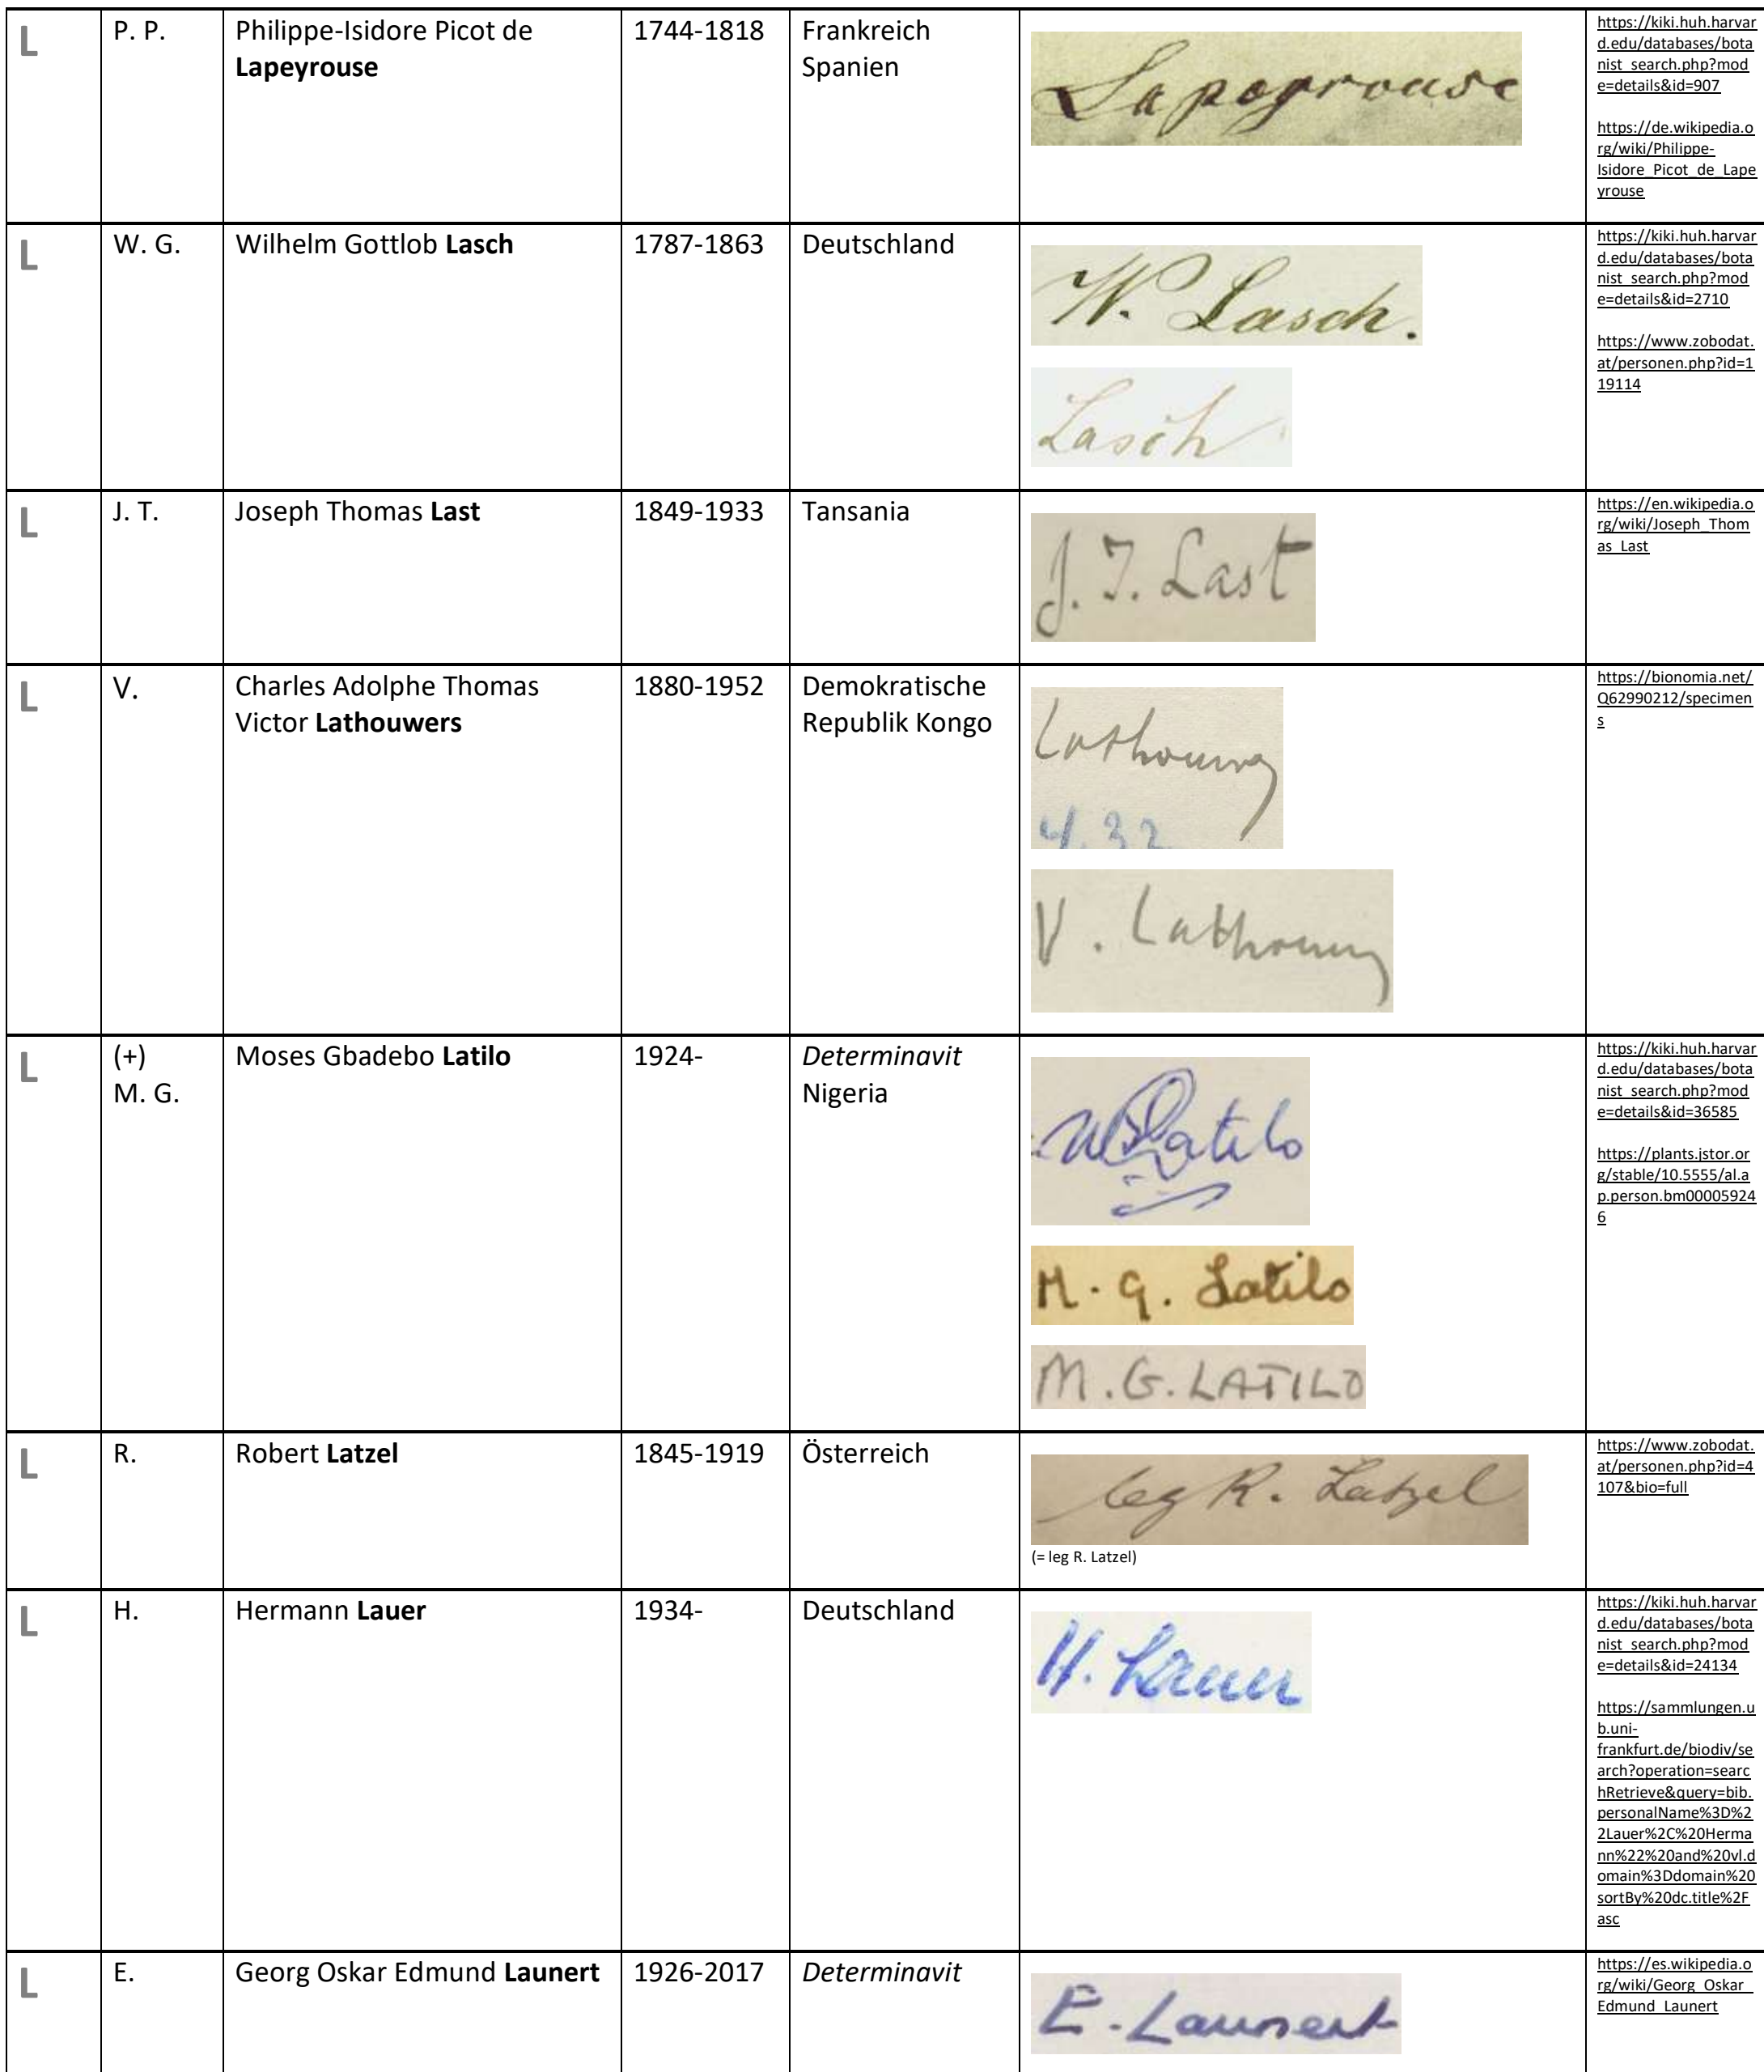 L P. P. Philippe-Isidore Picot de 1744-1818 Frankreich
Lapeyrouse Spanien
Lapeyrouse
https://kiki.huh.harvar
d.edu/databases/bota
nist_search.php?mod
e=details&id=907
https://de.wikipedia.o
rg/wiki/Philippe-
Isidore_Picot_de_Lape
yrouse
L W. G. Wilhelm Gottlob Lasch 1787-1863 Deutschland
W. Lasch.
Lasch
https://kiki.huh.harvar
d.edu/databases/bota
nist_search.php?mod
e=details&id=2710
https://www.zobodat.
at/personen.php?id=1
19114
L J. T. Joseph Thomas Last 1849-1933 Tansania
J. T. Last
https://en.wikipedia.o
rg/wiki/Joseph_Thom
as_Last
L V. Charles Adolphe Thomas 1880-1952 Demokratische
Victor Lathouwers Republik Kongo
Lathouwers
4. 32
V. Lathouwers
https://bionomia.net/
Q62990212/specimen
s
L (+) Moses Gbadebo Latilo 1924- Determinavit
M. G. Nigeria
MGLatilo
M. G. Latilo
M. G. LATILO
https://kiki.huh.harvar
d.edu/databases/bota
nist_search.php?mod
e=details&id=36585
https://plants.jstor.or
g/stable/10.5555/al.a
p.person.bm00005924
6
L R. Robert Latzel 1845-1919 Österreich
leg R. Latzel
(= leg R. Latzel)
https://www.zobodat.
at/personen.php?id=4
107&bio=full
L H. Hermann Lauer 1934- Deutschland
H. Lauer
https://kiki.huh.harvar
d.edu/databases/bota
nist_search.php?mod
e=details&id=24134
https://sammlungen.u
b.uni-
frankfurt.de/biodiv/se
arch?operation=searc
hRetrieve&query=bib.
personalName%3D%2
2Lauer%2C%20Herma
nn%22%20and%20vl.d
omain%3Ddomain%20
sortBy%20dc.title%2F
asc
L E. Georg Oskar Edmund Launert 1926-2017 Determinavit
E. Launert
https://es.wikipedia.o
rg/wiki/Georg_Oskar_
Edmund_Launert